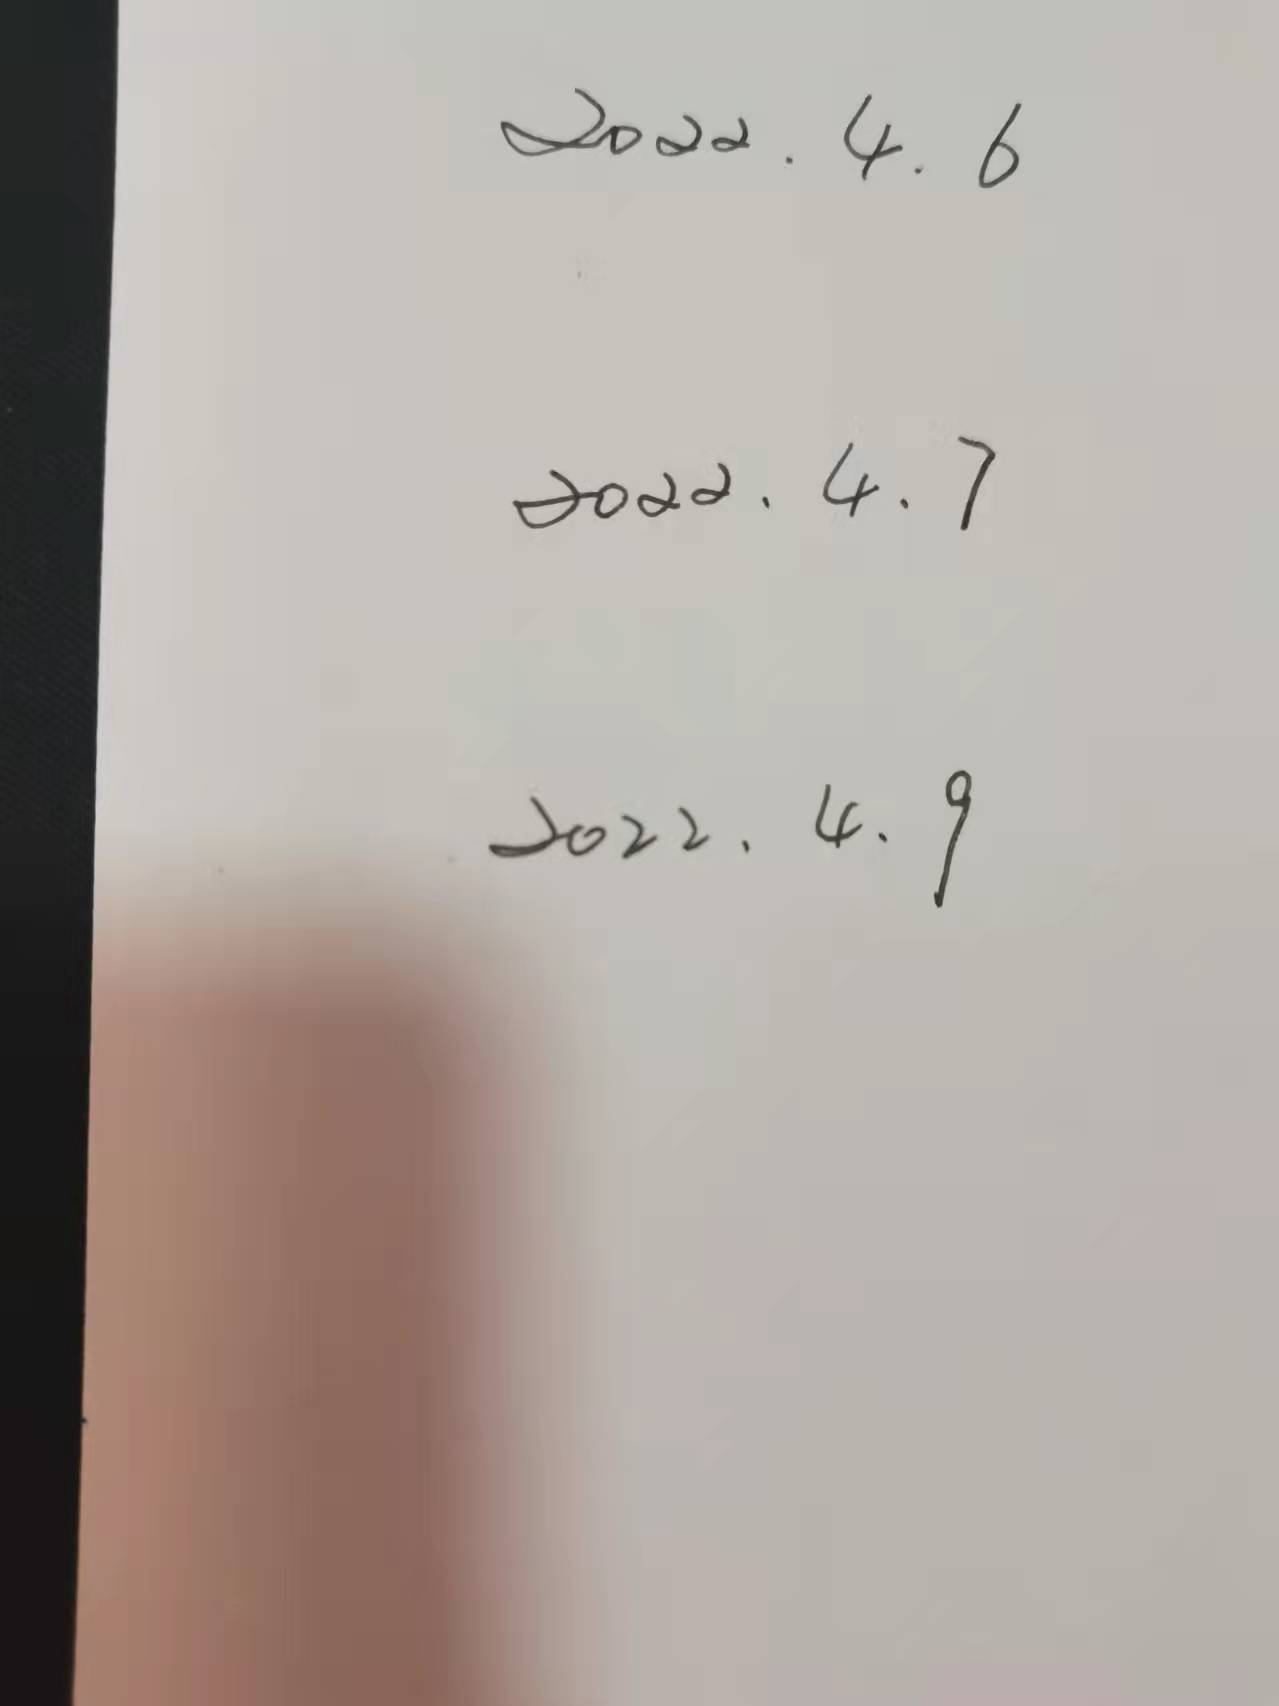 2022.4.6
2022.4.7
2022.4.9